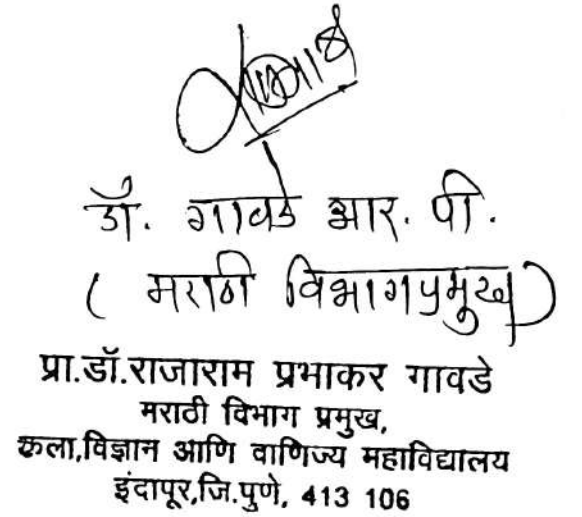 डॉ. गावडे आर. पी.
( मराठी विभागप्रमुख )
प्रा.डॉ.राजाराम प्रभाकर गावडे
मराठी विभाग प्रमुख,
कला,विज्ञान आणि वाणिज्य महाविद्यालय
इंदापूर,जि.पुणे, 413 106